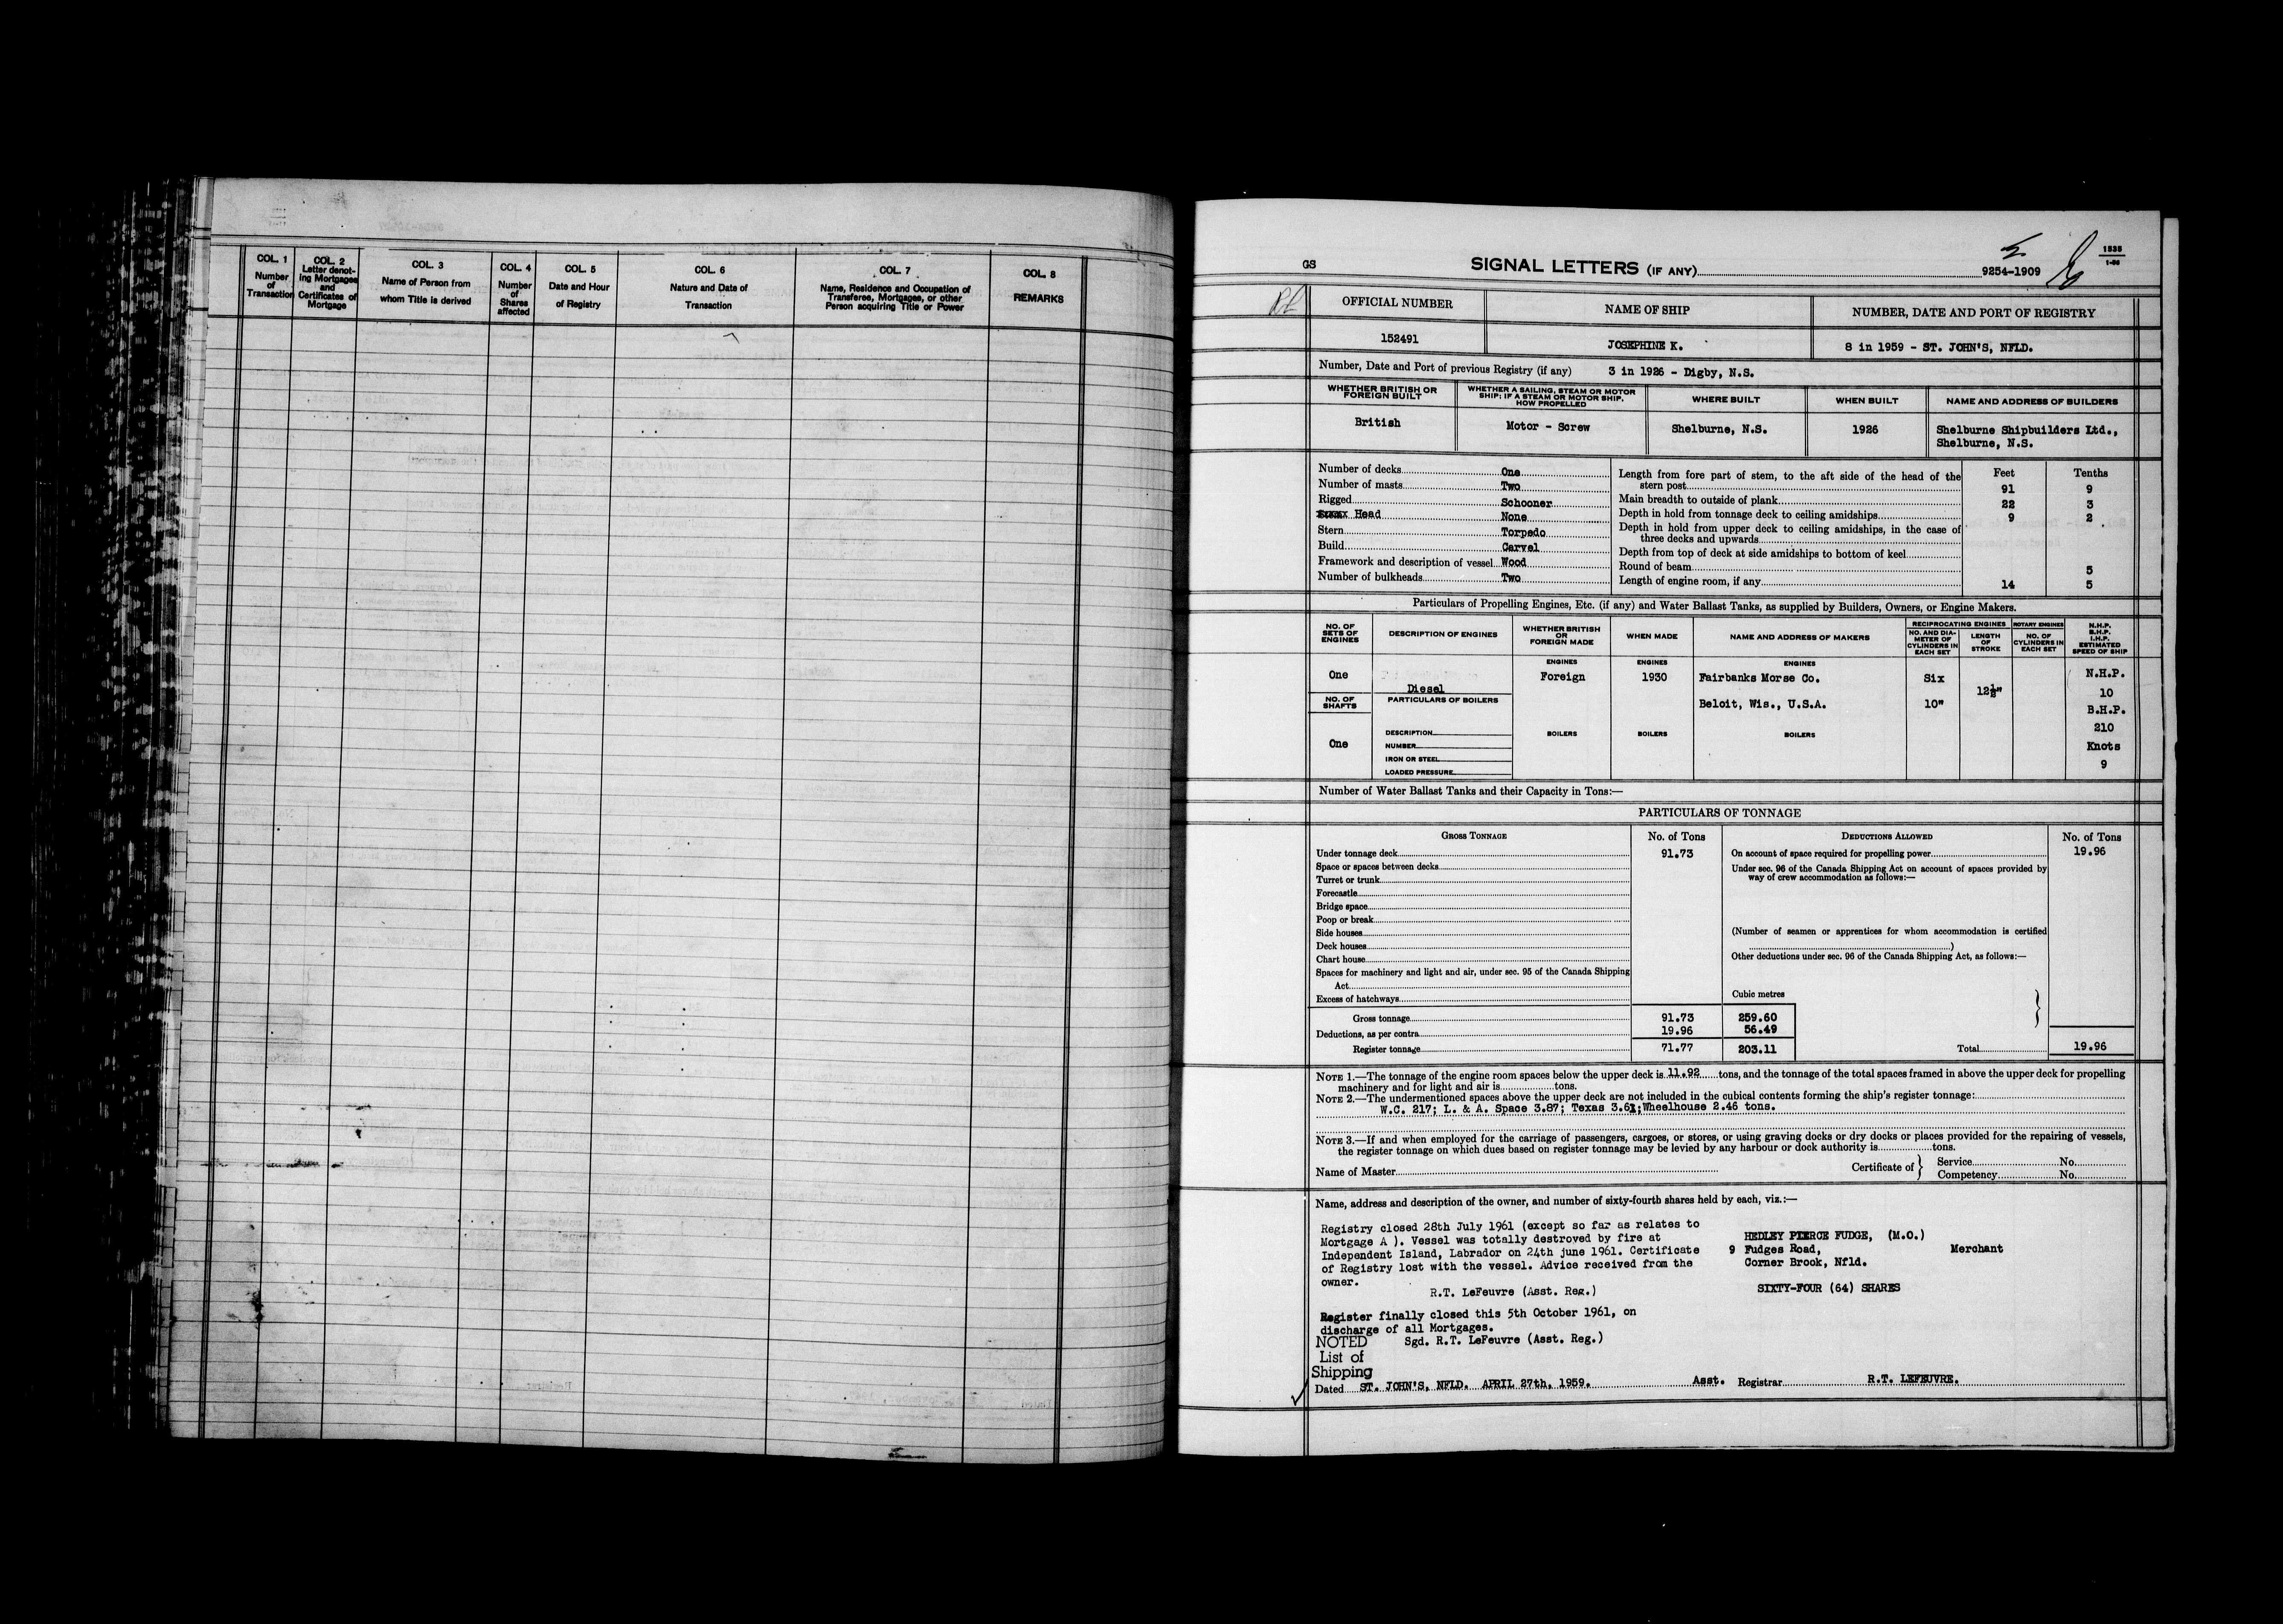 COL. 1
Number
of
Transaction
COL. 2
Letter denot-
ing Mortgages
and
Certificates of
Mortgage
COL. 3
Name of Person from
whom Title is derived
COL. 4
Number
of
Shares
affected
COL. 5
Date and Hour
of Registry
COL. 6
Nature and Date of
Transaction
COL. 7
Name, Residence and Occupation of
Transferee, Mortgagee, or other
Person acquiring Title or Power
COL. 8
REMARKS
GS
SIGNAL LETTERS (IF ANY)
9254-1909
OFFICIAL NUMBER
NAME OF SHIP
NUMBER, DATE AND PORT OF REGISTRY
152491
JOSEPHINE K.
8 in 1959 - ST. JOHN'S, NFLD.
Number, Date and Port of previous Registry (if any) 3 in 1926 - Digby, N.S.
WHETHER BRITISH OR
FOREIGN BUILT
WHETHER A SAILING, STEAM OR MOTOR
SHIP; IF A STEAM OR MOTOR SHIP,
HOW PROPELLED
WHERE BUILT
WHEN BUILT
NAME AND ADDRESS OF BUILDERS
British
Motor - Screw
Shelburne, N.S.
1926
Shelburne Shipbuilders Ltd.,
Shelburne, N.S.
Number of decks One
Number of masts Two
Rigged Schooner
Head None
Stern Torpedo
Build Carvel
Framework and description of vessel Wood
Number of bulkheads Two
Feet Tenths
Length from fore part of stem, to the aft side of the head of the
stern post 91 9
Main breadth to outside of plank 22 3
Depth in hold from tonnage deck to ceiling amidships 9 2
Depth in hold from upper deck to ceiling amidships, in the case of
three decks and upwards
Depth from top of deck at side amidships to bottom of keel
Round of beam 5
Length of engine room, if any 14 5
Particulars of Propelling Engines, Etc. (if any) and Water Ballast Tanks, as supplied by Builders, Owners, or Engine Makers.
NO. OF
SETS OF
ENGINES
DESCRIPTION OF ENGINES
WHETHER BRITISH
OR
FOREIGN MADE
WHEN MADE
NAME AND ADDRESS OF MAKERS
RECIPROCATING ENGINES
NO. AND DIA-
METER OF
CYLINDERS IN
EACH SET
LENGTH
OF
STROKE
ROTARY ENGINES
NO. OF
CYLINDERS IN
EACH SET
N.H.P.
B.H.P.
I.H.P.
ESTIMATED
SPEED OF SHIP
ENGINES ENGINES ENGINES
One
Diesel
Foreign
1930
Fairbanks Morse Co.
Beloit, Wis., U.S.A.
Six
10"
12½"
N.H.P.
10
B.H.P.
210
Knots
9
NO. OF
SHAFTS
One
PARTICULARS OF BOILERS
DESCRIPTION
NUMBER
IRON OR STEEL
LOADED PRESSURE
BOILERS BOILERS BOILERS
Number of Water Ballast Tanks and their Capacity in Tons:—
PARTICULARS OF TONNAGE
GROSS TONNAGE No. of Tons
Under tonnage deck 91.73
Space or spaces between decks
Turret or trunk
Forecastle
Bridge space
Poop or break
Side houses
Deck houses
Chart house
Spaces for machinery and light and air, under sec. 95 of the Canada Shipping
Act
Excess of hatchways
Cubic metres
Gross tonnage 91.73 259.60
Deductions, as per contra 19.96 56.49
Register tonnage 71.77 203.11
DEDUCTIONS ALLOWED No. of Tons
On account of space required for propelling power 19.96
Under sec. 96 of the Canada Shipping Act on account of spaces provided by
way of crew accommodation as follows:—
(Number of seamen or apprentices for whom accommodation is certified
)
Other deductions under sec. 96 of the Canada Shipping Act, as follows:—
Total 19.96
NOTE 1.—The tonnage of the engine room spaces below the upper deck is 11.92 tons, and the tonnage of the total spaces framed in above the upper deck for propelling
machinery and for light and air is tons.
NOTE 2.—The undermentioned spaces above the upper deck are not included in the cubical contents forming the ship's register tonnage:
W.C. 217; L. & A. Space 3.87; Texas 3.61; Wheelhouse 2.46 tons.
NOTE 3.—If and when employed for the carriage of passengers, cargoes, or stores, or using graving docks or dry docks or places provided for the repairing of vessels,
the register tonnage on which dues based on register tonnage may be levied by any harbour or dock authority is tons.
Name of Master
Certificate of
Service No.
Competency No.
Name, address and description of the owner, and number of sixty-fourth shares held by each, viz.:—
Registry closed 28th July 1961 (except so far as relates to
Mortgage A ). Vessel was totally destroyed by fire at
Independent Island, Labrador on 24th june 1961. Certificate
of Registry lost with the vessel. Advice received from the
owner.
R.T. LeFeuvre (Asst. Reg.)
Register finally closed this 5th October 1961, on
discharge of all Mortgages.
Sgd. R.T. LeFeuvre (Asst. Reg.)
NOTED
List of
Shipping
HEDLEY PIERCE FUDGE, (M.O.)
9 Fudges Road, Merchant
Corner Brook, Nfld.
SIXTY-FOUR (64) SHARES
Dated ST. JOHN'S, NFLD. APRIL 27th, 1959. Asst. Registrar R.T. LEFEUVRE.